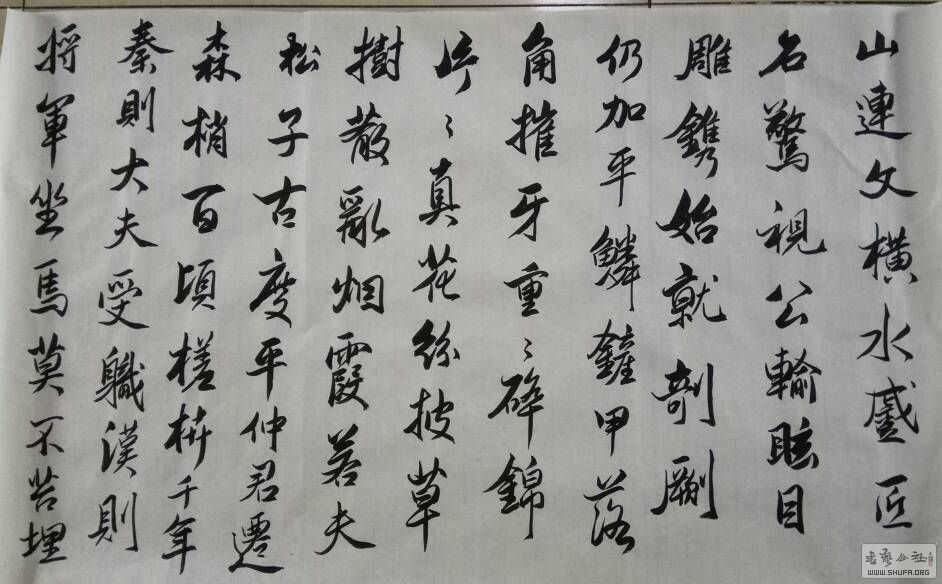 山連文橫水蹙匠
石驚視公輸眩目
雕鐫始就剞劂
仍加平鱗鏟甲落
角摧牙重〻碎錦
片〻真花紛披草
樹散亂烟霞若夫
松子古度平仲君遷
森梢百頃槎枿千年
秦則大夫受職漢則
將軍坐焉莫不苔埋
WWW.SHUFA.ORG